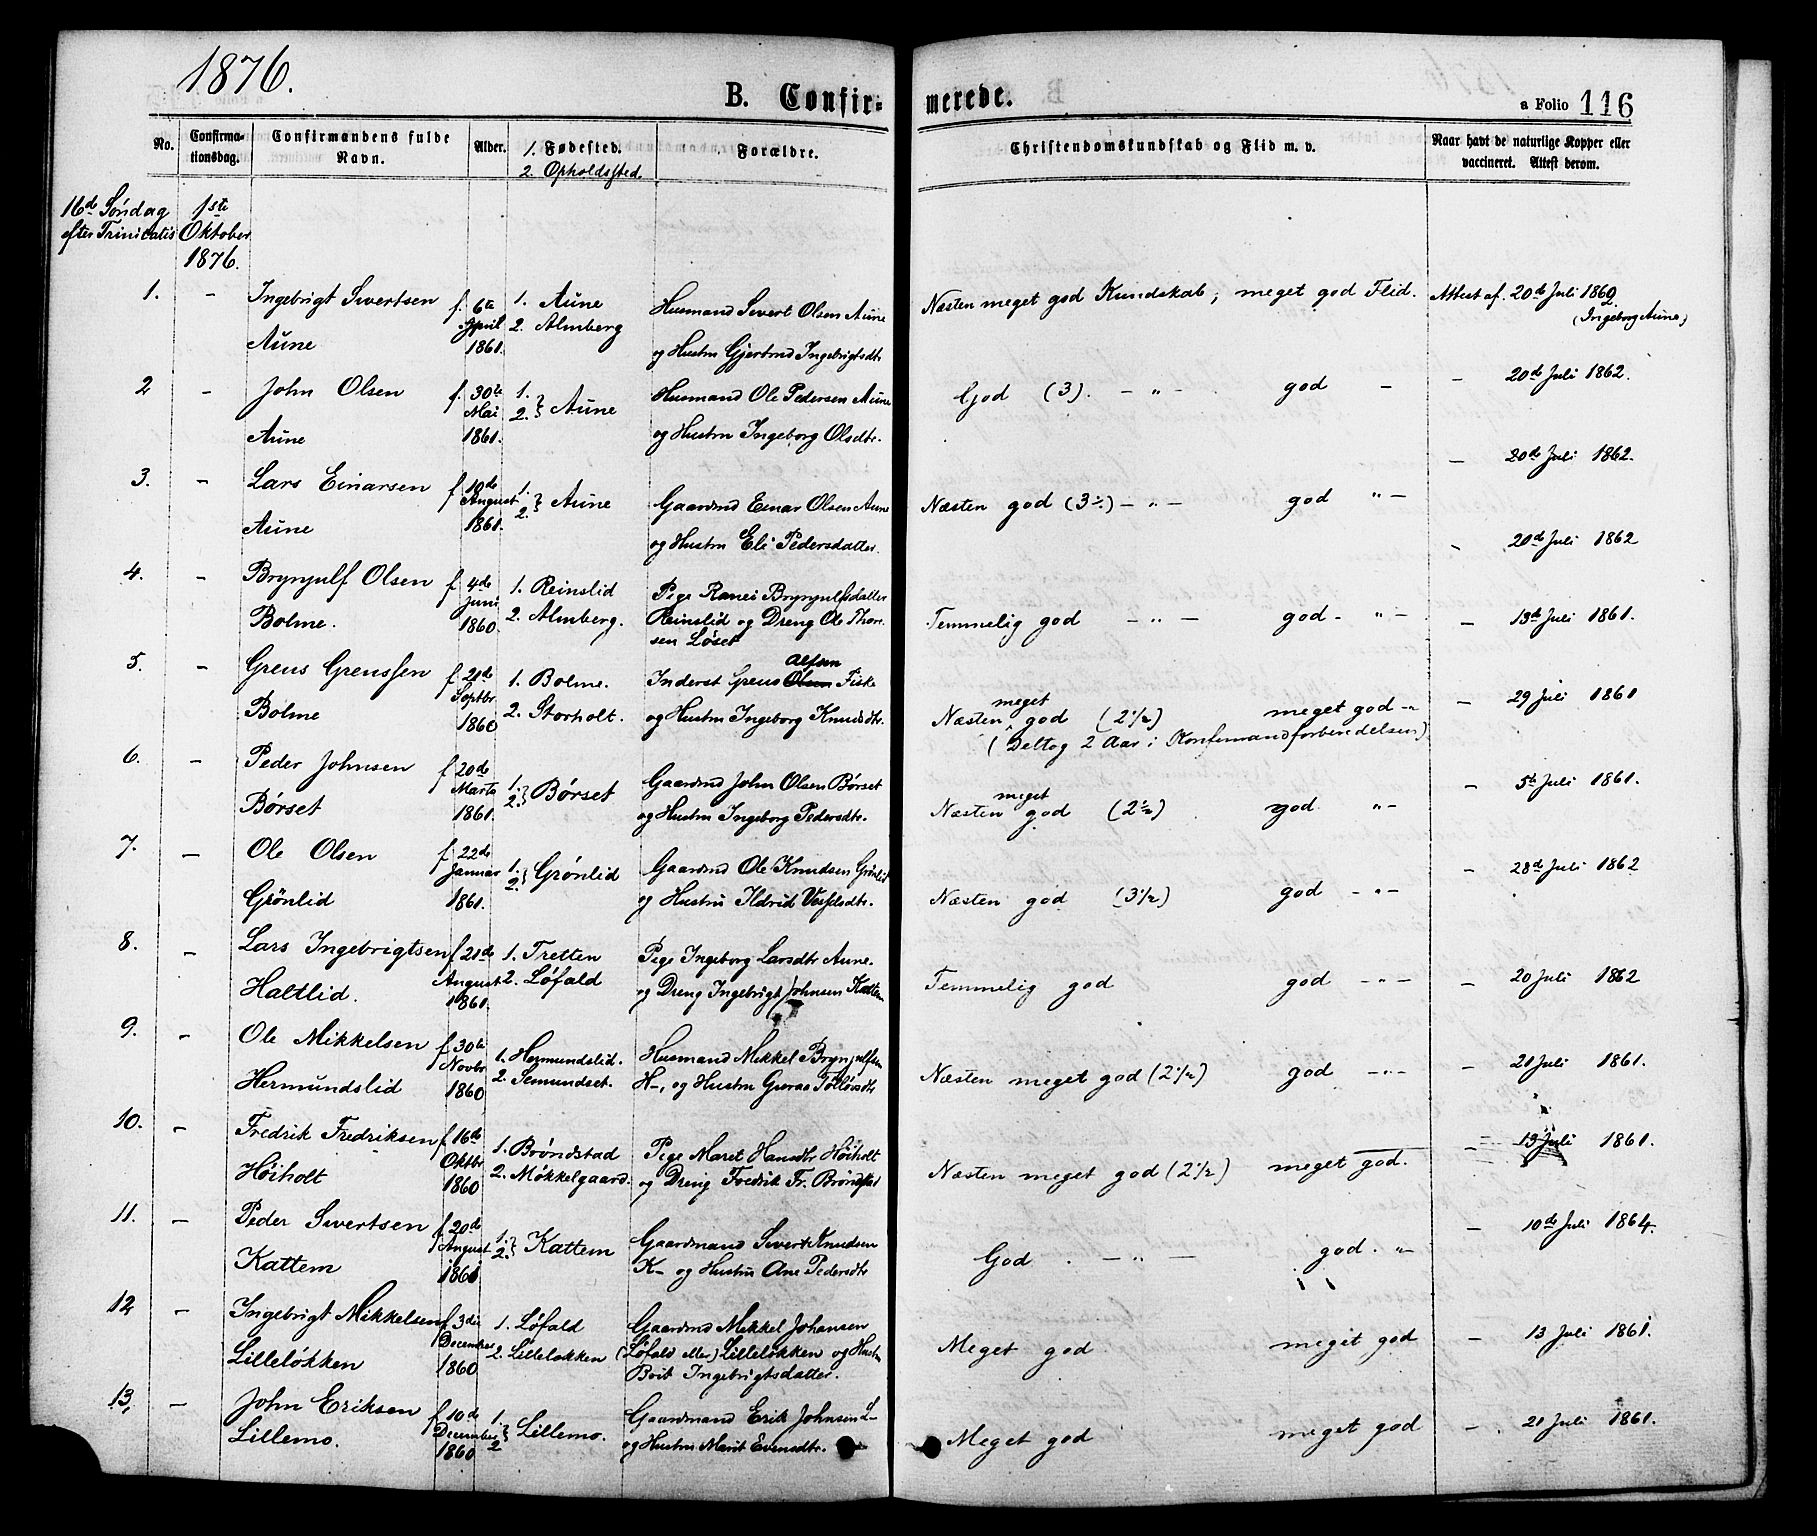 1876.
B. Confirmerede.
a Folio 116
No. Confirmationsdag. Confirmandens fulde Navn. Alder. 1. Fødested. 2. Opholdssted. Forældre. Christendomskundskab og Flid m. v. Naar havt de naturlige Kopper eller vaccineret. Attest derom.
16de Søndag 1ste
efter Trinitatis Oktober
1876.
1. - Ingebrigt Sivertsen f. 6te 1. Aune Husmand Sivert Olsen Aune Næsten meget god Kundskab; meget god Flid. Attest af. 20de Juli 1862.
April 2. Almberg (Ingeborg Aune)
Aune 1861. og Hustru Gjertrud Ingebrigtsdtr
2 - John Olsen f. 30te 1. Husmand Ole Pedersen Aune God (3). - " - god - - 20de Juli 1862.
Mai 2. } Aune
Aune 1861. og Hustru Ingeborg Olsdtr.
3. - Lars Einarsen f. 10de 1. - 20de Juli 1862.
August 2. } Aune Gaardmd Einar Olsen Aune Næsten god (3÷) - " - god " -
Aune 1861. og Hustru Eli Pedersdatter. - 20de Juli 1862
4. - Brynjulf Olsen f 4de 1. Reinslid Pige Ranei Brynjulfsdatter
Juni 2. Almberg. Reinslid og Dreng Ole Thor- Temmelig god - " - god - " - - 13de Juli 1861.
Bolme. 1860. sen Løset
5. - Greus Greussen f. 21de 1. Bolme. Inderst Greus Olsen Alfsen Fiske
Septbr meget - 29 Juli 1861
Bolme 1860 2. Storholt. og Hustru Ingeborg Knudsdtr. Næsten god (2 1/2) meget god -"
(Deltog 2 Aar i Konfirmandforberedelsen)
6. - Peder Johnsen f 20de 1. Gaardmd John Olsen Børset meget - 5te Juli 1861.
Marts 2. } Børset
Børset 1861. og Hustru Ingeborg Pedersdtr. Næsten god (2 1/2) god. " -
7. - Ole Olsen f 22de 1. Gaardmd Ole Knudsen Grönlid - 28de Juli 1862
Januar 2. } Grønlid
Grönlid 1861. og Hustru Ildrid Vesselsdtr. Næsten god (3 1/2) god - " -
8. - Lars Ingebrigtsen f 21de 1. Tretten Pige Ingeborg Larsdtr Aune.
August 2. Løfald
Haltlid. 1861. og Dreng Ingebrigt Johnsen Kattem Temmelig god god - " - - 20 Juli 1862
9. - Ole Mikkelsen f 30te 1. Hermundslid. Husmand Mikkel Brynjulfsen
Novbr - 21 Juli 1861.
Hermundslid 1860 2. Semundset. H-, og Hustru Guroe Næsten meget god (2 1/2) god - " -
10. - Fredrik Fredriksen f 16de 1. Brøndstad Pige Maret Hansdtr Høiholt - 13 Juli 1861.
Oktbr
Høiholt 1860 2. Møkkelgaard. og Dreng Fredrik Fr. Brøndstad Næsten meget god (2 1/2) meget god.
11. - Peder Sivertsen f 20de 1. Gaardmand Sivert Knudsen - 10de Juli 1864.
August 2. } Kattem
Kattem 1861 K- og Hustru Ane Pedersdtr God . - " - god. "
12 - Ingebrigt Mikkelsen f. 3die 1. Løfald Gaardmd Mikkel Johansen
December 2. Lilleløkken (Løfald eller) Lilleløkken og Hustru Meget god meget god - 13 Juli 1861.
Lilleløkken 1860 Brit Ingebrigtsdatter.
13, - John Eriksen f 10de 1. Gaardmand Erik Johnsen L- - 21 Juli 1861.
December 2 } Lillemo.
Lillemo. 1860 og Hustru Marit Evensdtr. Meget god meget god